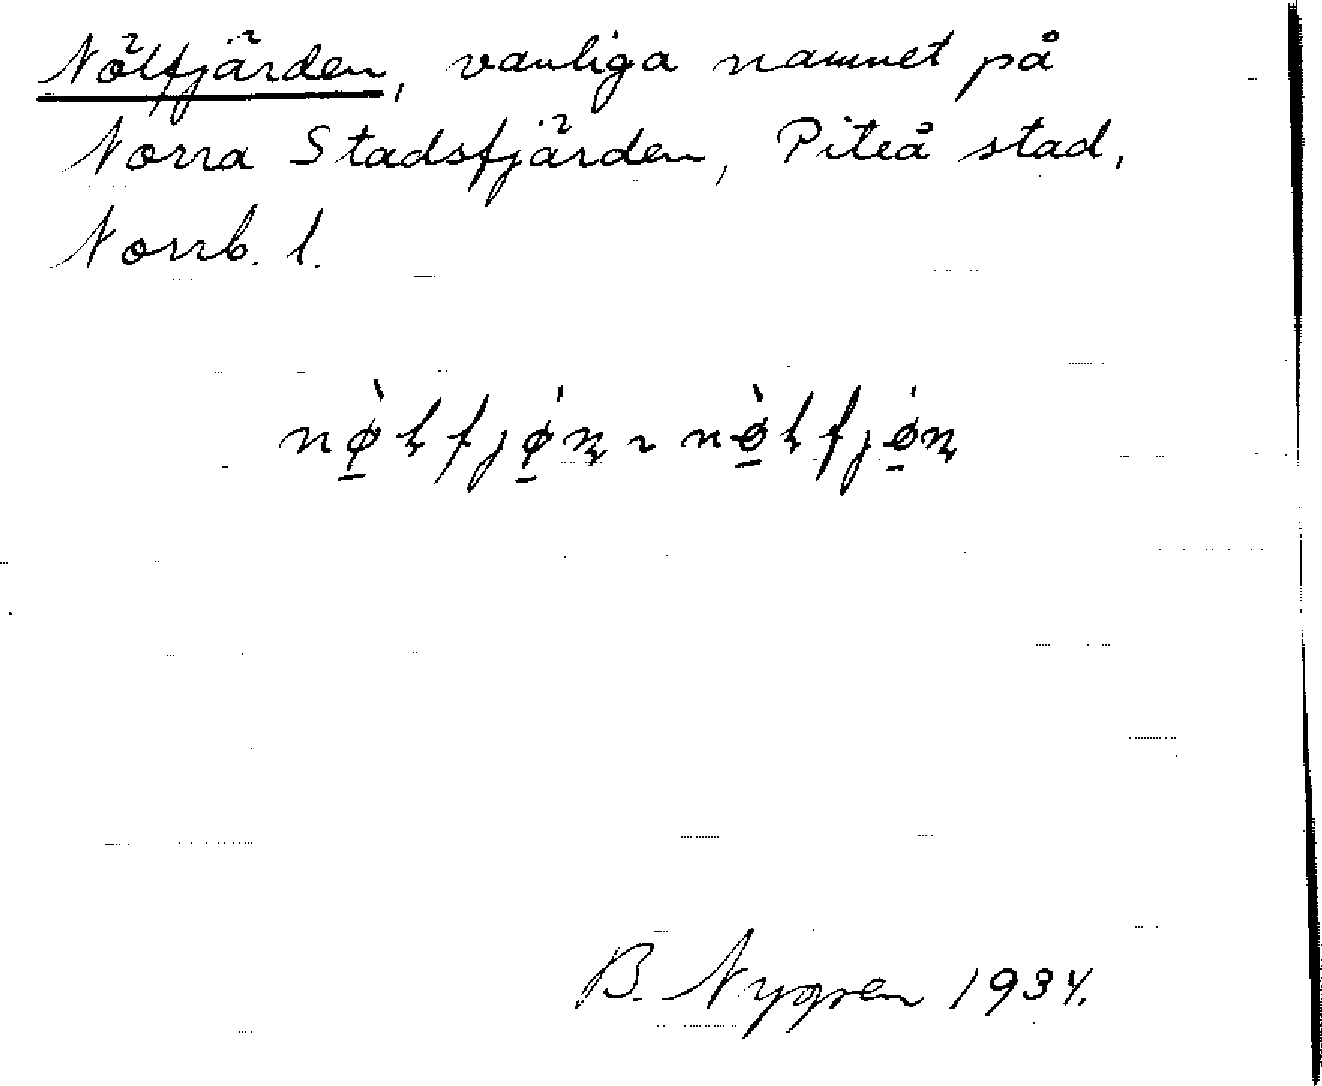 Nölfjärden, vanliga namnet på
Norra Stadsfjärden, Piteå stad,
Norrb. l.
B. Nygren 1934.